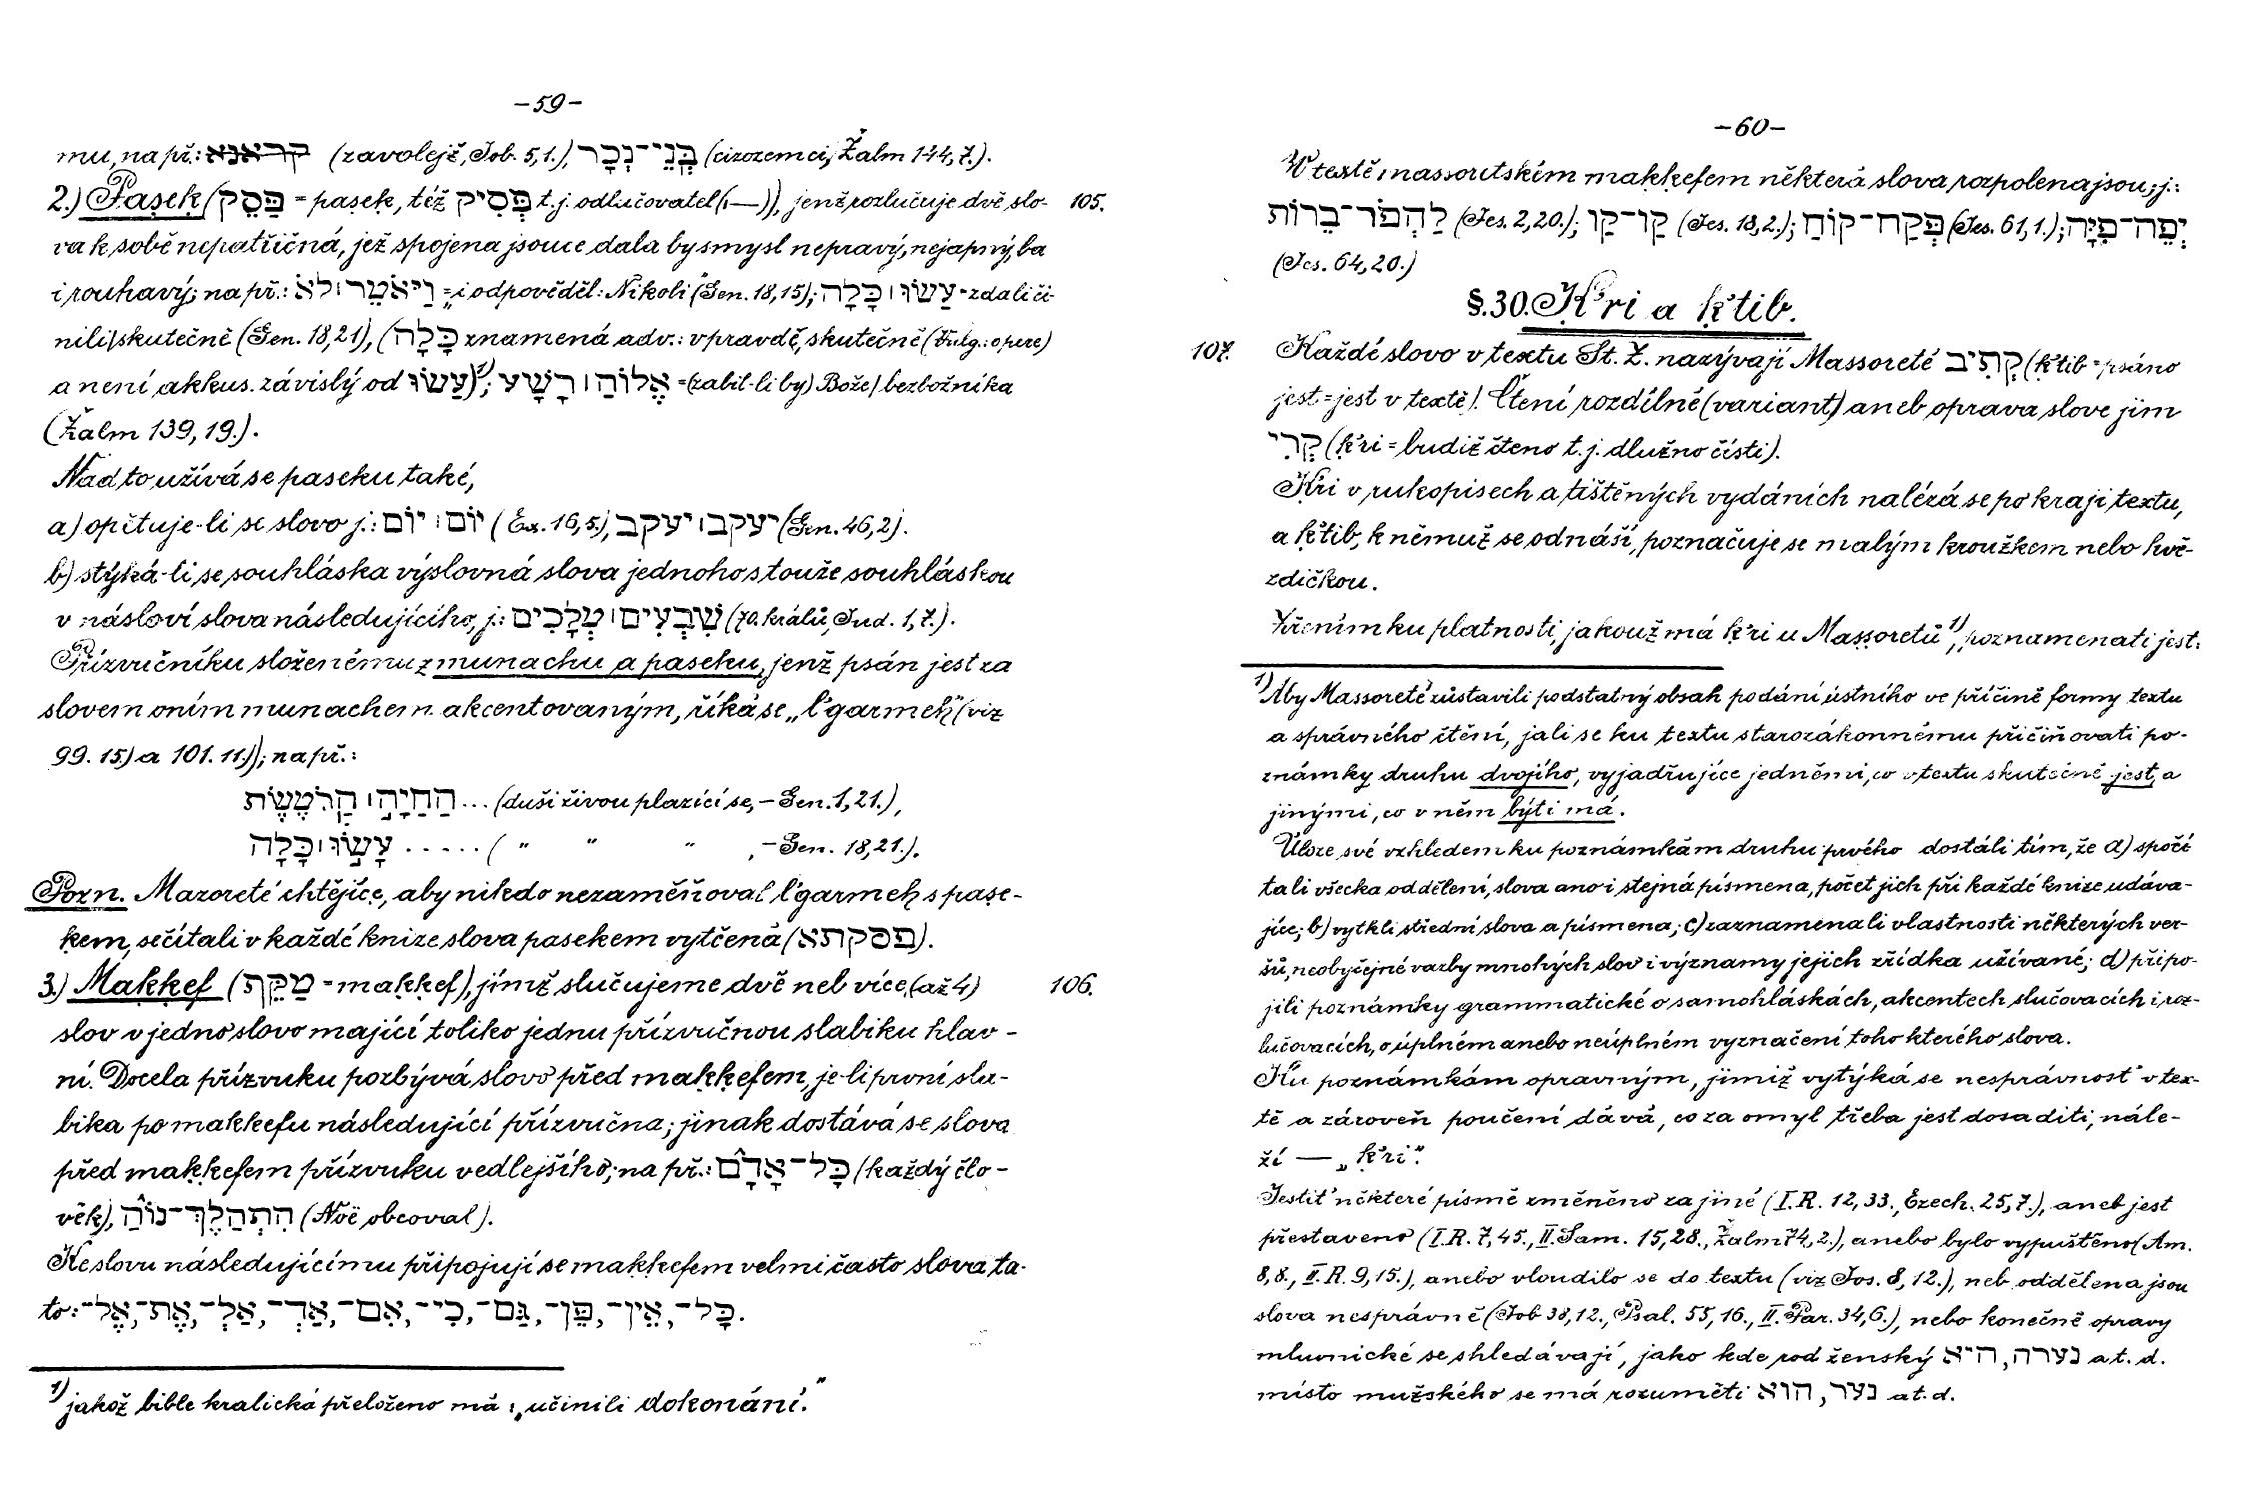 –59–
mu, na př.: קרא־נא (zavolejž, Job. 5,1.), בְּנֵי־נְכָר (cizozemci, Žalm 144,7.).
2.) Pasek (פַּסֵק = pasek, též פְּסִיק t.j. odlučovatel (׀—)), jenž rozlučuje dvě slo- 105.
va k sobě nepatřičná, jež spojena jsouce dala by smysl nepravý, nejapný, ba
i rouhavý; na př.: וַיּאֹמֶר׀לֹא = i odpověděl: Nikoli (Gen. 18,15); עָשׂוּ׀כָּלָה = zdali či-
nili skutečně (Gen. 18,21), (כָּלָה znamená adv.: vpravdě, skutečně (Vulg.: opere)
a není akkus. závislý od עָשׂוּ)¹⁾; אֱלוֹהַּ׀רָשָׁע = (zabil-li by) Bože / bezbožníka
(Žalm 139,19.).
Nad to užívá se paseku také,
a) opětuje-li se slovo j.: יוֹם׀יוֹם (Ex. 16,5.), יעקב׀יעקב (Gen. 46,2).
b) stýká-li se souhláska výslovná slova jednoho s touže souhláskou
v násloví slova následujícího, j.: שִׁבְעִים׀מְלָכִים (70. králů, Jud. 1,7.).
Přízvučníku složenému z munachu a paseku, jenž psán jest za
slovem oním munachem akcentovaným, říká se „lᵉgarmeh" (viz
99. 15) a 101. 11.)); na př.:
הַחַיָּה׀הָרֹמֶשֶׂת ... (duši živou plazící se, – Gen. 1,21.),
עָשׂוּ׀כָּלָה ..... ( " " " , – Gen. 18,21.).
Pozn. Mazoreté chtějíce, aby nikdo nezaměňoval lᵉgarmeh s pase-
kem, sečítali v každé knize slova pasekem vytčená (פסקתא).
3.) Makkef (מַקֵּף = makkef), jímž slučujeme dvě neb více (až 4) 106.
slov v jedno slovo mající toliko jednu přízvučnou slabiku hlav-
ní. Docela přízvuku pozbývá slovo před makkefem, je-li první sla-
bika po makkefu následující přízvučna; jinak dostává se slova
před makkefem přízvuku vedlejšího; na př.: כָּל־אָדָם (každý člo-
věk), הִתְהַלֶּךְ־נוֹחַ (Noë obcoval).
Ke slovu následujícímu připojují se makkefem velmi často slova ta-
to: כָּל־, אֵין־, פֶּן־, גַּם־, כִּי־, אִם־, אַךְ־, אַל־, אֶת־, אֶל־.
¹⁾ jakož bible kralická přeloženo má: „učinili dokonání."
–60–
V textě massoretském makkefem některá slova rozpolena jsou; j.:
לַחְפֹּר־פֵּרוֹת (Jes. 2,20.); קַו־קַו (Jes. 18,2.); פְּקַח־קוֹחַ (Jes. 61,1.); יְפֵה־פִיָּה
(Jes. 64,20.)
§.30. Kᵉri a kᵉtib.
107. Každé slovo v textu St. Z. nazývají Massoreté כְּתִיב (kᵉtib = psáno
jest = jest v textě). Čtení rozdílné (variant) aneb oprava slove jim
קְרִי (kᵉri = budiž čteno t.j. dlužno čísti).
Kᵉri v rukopisech a tištěných vydáních nalézá se po kraji textu,
a kᵉtib, k němuž se odnáší, poznačuje se malým kroužkem nebo hvě-
zdičkou.
Zřením ku platnosti, jakouž má kᵉri u Massoretů¹⁾, poznamenati jest:
¹⁾ Aby Massoreté zůstavili podstatný obsah podání ústního ve příčině formy textu
a správného čtění, jali se ku textu starozákonnému přičiňovati po-
známky druhu dvojího, vyjadřujíce jedněmi, co v textu skutečně jest, a
jinými, co v něm býti má.
Úloze své vzhledem ku poznámkám druhu prvého dostáli tím, že a) spočí-
tali všecka oddělení, slova ano i stejná písmena, počet jich při každé knize udáva-
jíce; b) vytkli střední slova a písmena; c) zaznamenali vlastnosti některých ver-
šů, neobyčejné vazby mnohých slov i významy jejich zřídka užívané; d) připo-
jili poznámky grammatické o samohláskách, akcentech slučovacích i roz-
lučovacích, o úplném anebo neúplném vyznačení toho kterého slova.
Ku poznámkám opravným, jimiž vytýká se nesprávnost v tex-
tě a zároveň poučení dává, co za omyl třeba jest dosaditi, nále-
ží — „kᵉri".
Jestiť některé písmě změněno za jiné (I. R. 12,33., Ezech. 25,7.), aneb jest
přestaveno (I. R. 7,45., II. Sam. 15,28., Žalm 74,2.), anebo bylo vypuštěno (Am.
8,8., II. R. 9,15.), anebo vloudilo se do textu (viz Jos. 8,12.), neb oddělena jsou
slova nesprávně (Job 38,12., Psal. 55,16., II. Par. 34,6.), nebo konečně opravy
mluvnické se shledávají, jako kde rod ženský נערה, היא at. d.
místo mužského se má rozuměti נער, הוא at. d.